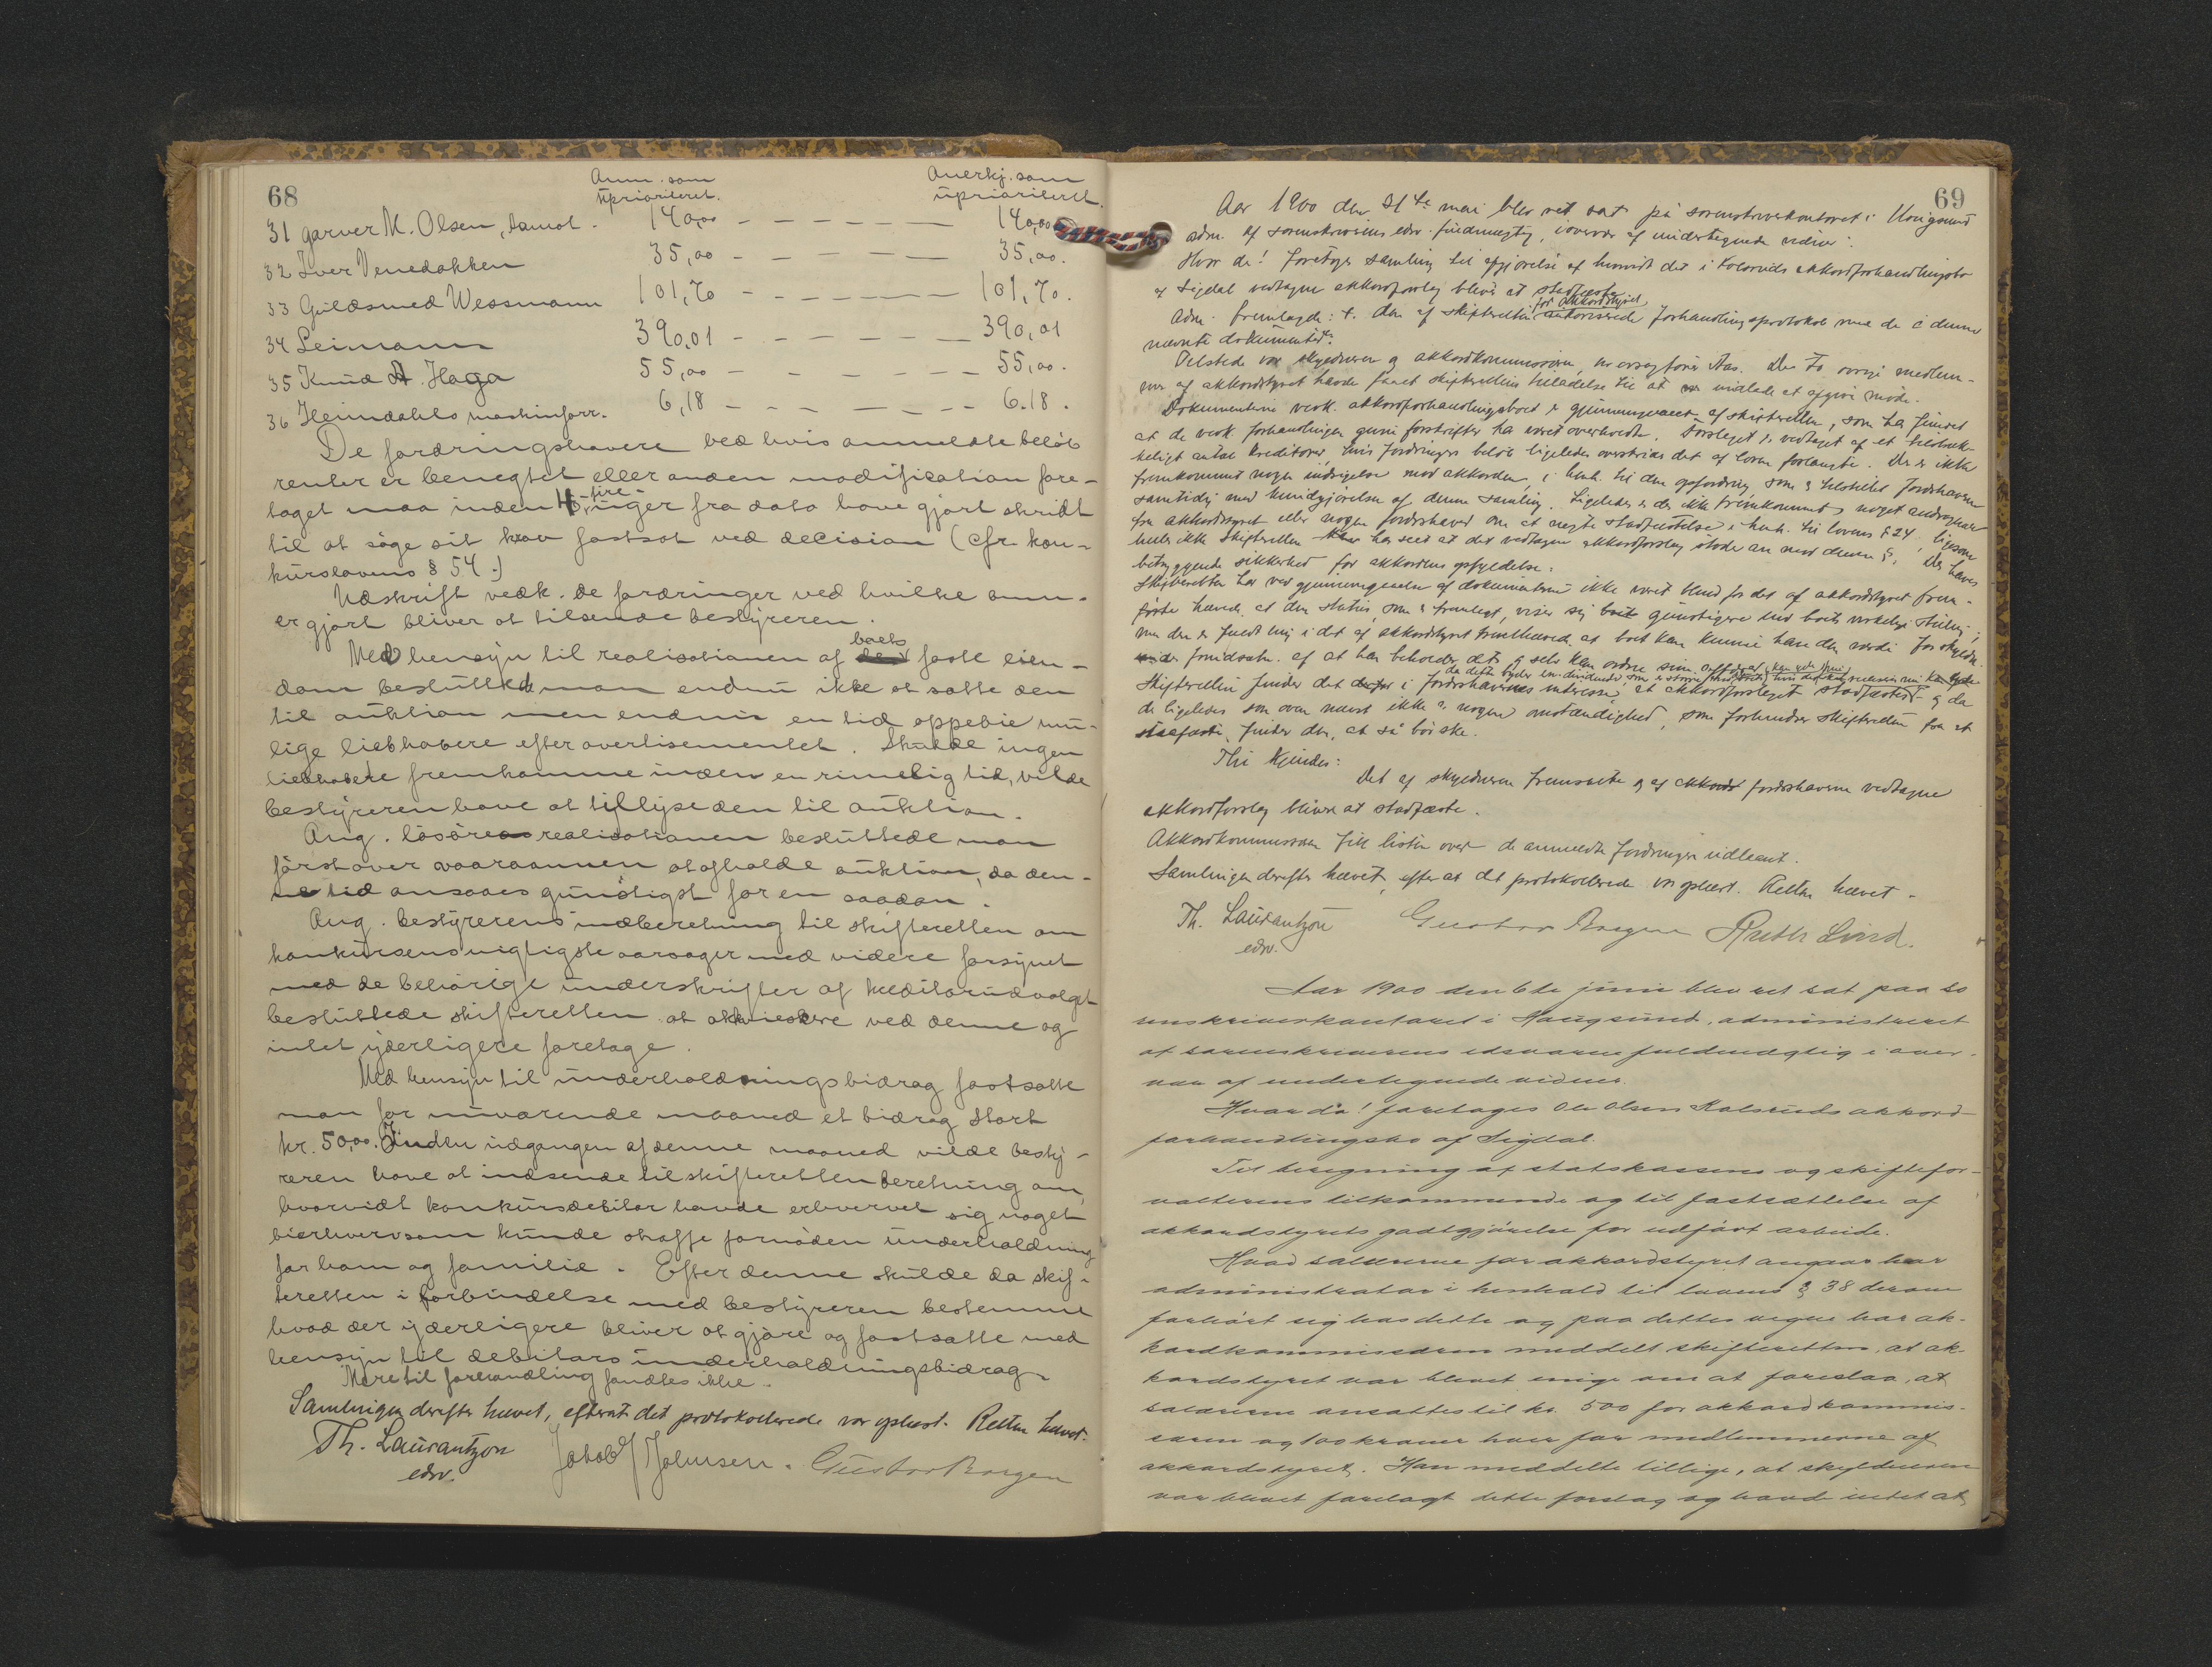 68
Anm. som
uprioriteret.
Anerkj. som
upriariteret.
31 garver M. Olsen, samst. 140,00 — — — — — 140,00
32 Iver Venedokken 35,00 — — — — — 35,00.
33 Guldsmed Wessmann 101,70 — — — — — 101,70.
34 Leimann 390,01 — — — — — 390,01
35 Knud A. Haga 55,00 — — — — — 55,00.
36 Heimdahls maskinforr. 6,18 — — — — — 6.18.
De fordringshavere ved hvis anmeldte beløb
renter er benegtet eller anden modifikation fore-
taget maa inden 4, fire- uger fra dato have gjort skridt
til at søge sit krav fastsat ved decision (cfr. kon-
kurslovens § 54.)
Udskrift vedk. de fordringer ved hvilke anm.
er gjort bliver at tilsende bestyreren.
Med hensyn til realisationen af boets faste eien-
dom besluttede man endnu ikke at sætte den
til auktion men endnu en tid oppebie mu-
lige liebhabere efter avertisementet. Skulde ingen
liebhabere fremkomme inden en rimelig tid, vilde
bestyreren have at tillyse den til auktion.
Ang. løsørerealisationen besluttede man
først over vaaraannen at afholde auktion, da den-
ne tid ansaaes gunstigst for en saadan.
Ang. bestyrerens indberetning til skifteretten om
konkursens vigtigste aarsager med videre forsynet
med de behørige underskrifter af kreditorudvalget
besluttede skifteretten at akkviescere ved denne og
intet yderligere foretage.
Med hensyn til underholdningsbidrag fastsatte
man for nuværende maaned et bidrag stort
kr. 50,00. Inden udgangen af denne maaned vilde besty-
reren have at indsende til skifteretten beretning om,
hvorvidt konkursdebitor havde erhvervet sig noget
bierhverv som kunde skaffe fornøden underholdning
for ham og familie. Efter denne skulde da skif-
teretten i forbindelse med bestyreren bestemme
hvad der yderligere bliver at gjøre og fastsætte med
hensyn til debitors underholdningsbidrag.
Mere til forhandling fandtes ikke.
Samlingen derefter hævet, efterat det protokollerede var oplæst. Retten hævet.
Th. Laurantzon
edsv.
Jakob Johnsen. Gustav Borgen
69
Aar 1900 den 31te mai blev ret sat på sorenskriverkontoret i Haugsund
adm. af sorenskriverens edsv. fuldmægtig, i overvær af undertegnede vidner.
Hvor da! foretoges samling til afgjørelse af hvorvidt det i Kolsruds akkordforhandlingsbo
af Sigdal vedtagne akkordforslag bliver at stadfæste.
Adm. fremlagde: 1. den af skifteretten for akkordstyret autoriserede forhandlingsprotokol med de i denne
nævnte dokumenter.
Tilstede var skyldneren og akkordkommissæren, overssagfører Aas. De to øvrige medlem-
mer af akkordstyret havde faaet skifterettens tilladelse til at undlade at afgive møde.
Dokumenterne vedk. akkordforhandlingsboet er gjennemgaaet af skifteretten, som har fundet
at de vedk. forhandlingen givne forskrifter ha været overholdte. Forslaget er vedtaget af et tilstræk-
keligt antal kreditorer, hvis fordringers beløb ligeledes overstiger det af loven forlangte. Der er ikke
fremkommet nogen indsigelse mod akkorden, i henh. til den opfordring som er tilstillet fordrshaverne
samtidig med kundgjørelsen af denne samling. Ligeledes er der ikke fremkommet noget andragende
fra akkordstyret eller nogen fordrshaver om at negte stadfæstelse i henh. til lovens § 24, ligesom
heller ikke skifteretten har seet at det vedtagne akkordforslag støder an mod denne §. Der haves
betryggende sikkerhed for akkordens opfyldelse.
Skifteretten har ved gjennemgaaelse af dokumenterne ikke været blind for det af akkordstyret frem-
førte hævde, at den status, som er fremlagt, viser sig gunstigere end boets virkelige stilling;
Skifteretten finder det i fordrshavernes interesse at akkordforslaget stadfæstes og da
de ligeledes som oven nævnt ikke er nogen omstændighed, som forhindrer skifteretten fra at
stadfæste, finder den, at så bør ske.
Thi kjendes:
Det af skyldneren fremsatte og af fordrshaverne vedtagne
akkordforslag bliver at stadfæste.
Akkordkommissæren fik listen over de anmeldte fordringer udleant.
Samlingen derefter hævet, efter at det protokollerede var oplæst. Retten hævet.
Th. Laurantzon
edsv.
Gustav Borgen Ruth Lind.
Aar 1900 den 6te juni blev ret sat paa so
renskriverkontoret i Haugsund, administreret
af sorenskriverens edsvorne fuldmægtig i over-
vær af undertegnede vidner.
Hvor da! foretages Ole Olsen Kolsruds akkord-
forhandlingsbo af Sigdal.
Til beregning af statskassens og skiftefor-
valterens tilkommende og til fastsættelse af
akkordstyrets godtgjørelse for udført arbeide.
Hvad salærerne for akkordstyret angaar har
administrator i henhold til lovens § 38 derom
forhørt sig hos dette og paa dettes vegne har ak-
kordkommissæren meddelt skifteretten, at ak-
kordstyret var blevet enige om at foreslaa, at
salærerne ansættes til kr. 500 for akkordkommis-
særen og 100 kroner hver for medlemmerne af
akkordstyret. Han meddelte tillige, at skyldneren
var blevet forelagt dette forslag og havde intet at